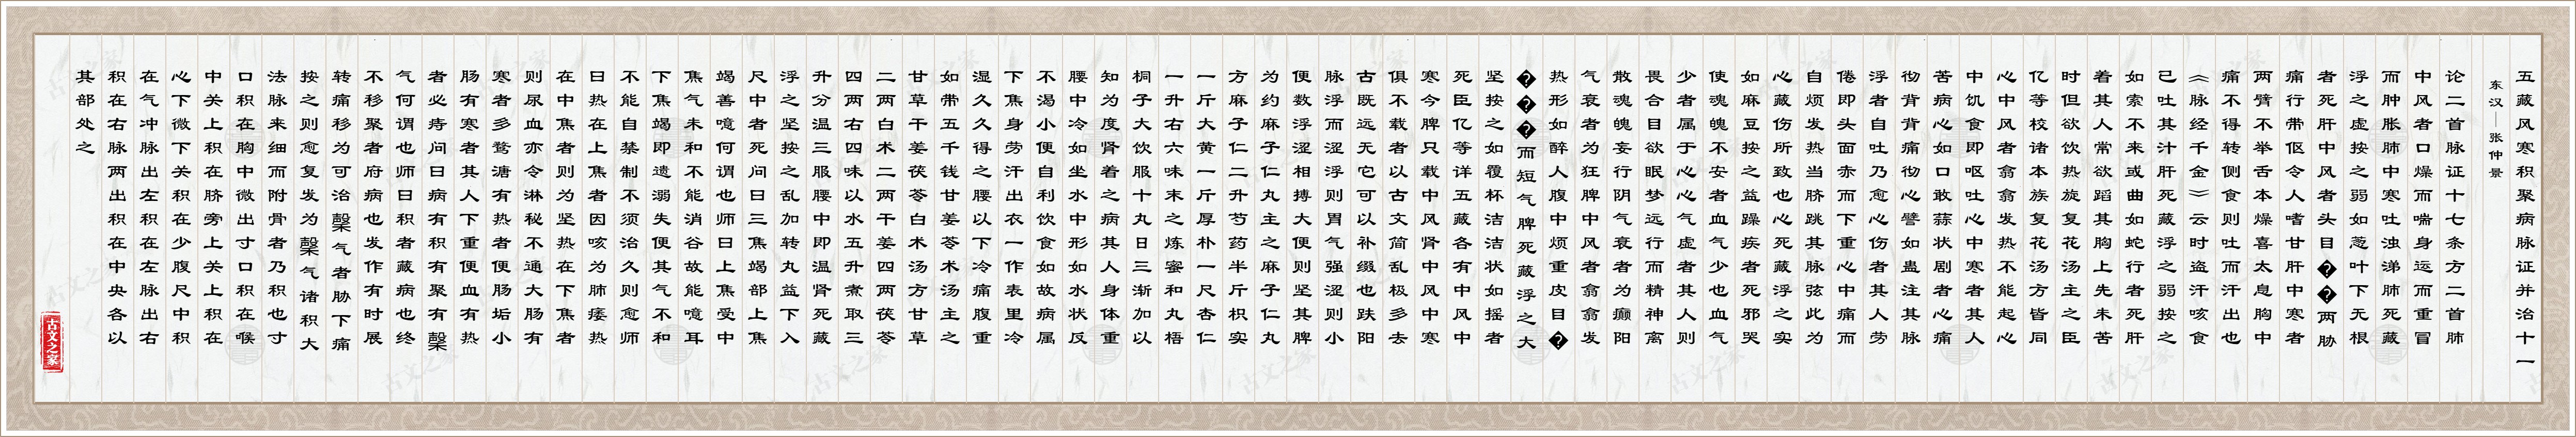 五藏风寒积聚病脉证并治十一
东汉——张仲景
论二首脉证十七条方二首肺
中风者口燥而喘身运而重冒
而肿胀肺中寒吐浊涕肺死藏
浮之虚按之弱如葱叶下无根
者死肝中风者头目��两胁
痛行带伛令人嗜甘肝中寒者
两臂不举舌本燥喜太息胸中
痛不得转侧食则吐而汗出也
《脉经千金》云时盗汗咳食
已吐其汁肝死藏浮之弱按之
如索不来或曲如蛇行者死肝
着其人常欲蹈其胸上先未苦
时但欲饮热旋复花汤主之臣
亿等校诸本族复花汤方皆同
心中风者翕翕发热不能起心
中饥食即呕吐心中寒者其人
苦病心如口敢蒜状剧者心痛
彻背背痛彻心譬如蛊注其脉
浮者自吐乃愈心伤者其人劳
倦即头面赤而下重心中痛而
自烦发热当脐跳其脉弦此为
心藏伤所致也心死藏浮之实
如麻豆按之益躁疾者死邪哭
使魂魄不安者血气少也血气
少者属于心心气虚者其人则
畏合目欲眠梦远行而精神离
散魂魄妄行阴气衰者为癫阳
气衰者为狂脾中风者翕翕发
热形如醉人腹中烦重皮目�
���而短气脾死藏浮之大
坚按之如覆杯洁洁状如摇者
死臣亿等详五藏各有中风中
寒今脾只载中风肾中风中寒
俱不载者以古文简乱极多去
古既远无它可以补缀也趺阳
脉浮而涩浮则胃气强涩则小
便数浮涩相搏大便则坚其脾
为约麻子仁丸主之麻子仁丸
方麻子仁二升芍药半斤枳实
一斤大黄一斤厚朴一尺杏仁
一升右六味末之炼蜜和丸梧
桐子大饮服十丸日三渐加以
知为度肾着之病其人身体重
腰中冷如坐水中形如水状反
不渴小便自利饮食如故病属
下焦身劳汗出衣一作表里冷
湿久久得之腰以下冷痛腹重
如带五千钱甘姜苓术汤主之
甘草干姜茯苓白术汤方甘草
二两白术二两干姜四两茯苓
四两右四味以水五升煮取三
升分温三服腰中即温肾死藏
浮之坚按之乱加转丸益下入
尺中者死问曰三焦竭部上焦
竭善噫何谓也师曰上焦受中
焦气未和不能消谷故能噫耳
下焦竭即遗溺失便其气不和
不能自禁制不须治久则愈师
曰热在上焦者因咳为肺痿热
在中焦者则为坚热在下焦者
则尿血亦令淋秘不通大肠有
寒者多鹜溏有热者便肠垢小
肠有寒者其人下重便血有热
者必痔问曰病有积有聚有䅽
气何谓也师曰积者藏病也终
不移聚者府病也发作有时展
转痛移为可治䅽气者胁下痛
按之则愈复发为䅽气诸积大
法脉来细而附骨者乃积也寸
口积在胸中微出寸口积在喉
中关上积在脐旁上关上积在
心下微下关积在少腹尺中积
在气冲脉出左积在左脉出右
积在右脉两出积在中央各以
其部处之
古文之家